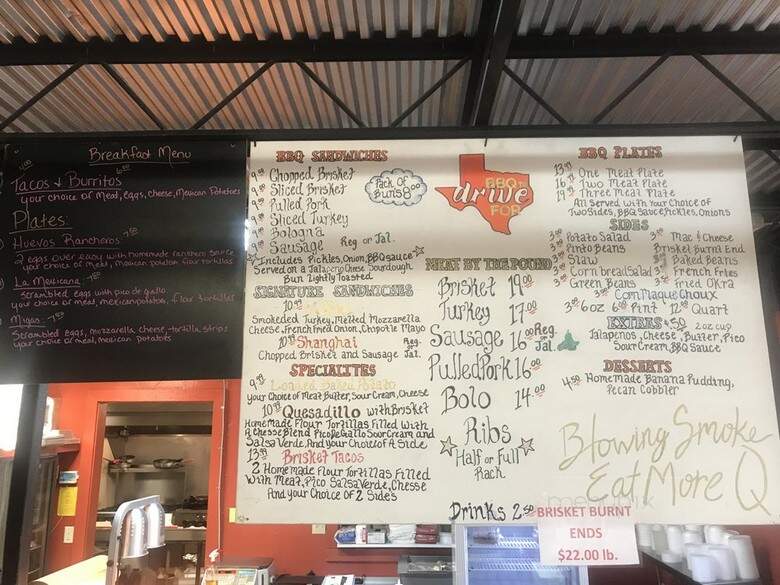 Breakfast Menu
Tacos & Burritos
your choice of meat, eggs, cheese, Mexican Potatoes
Plates:
Huevos Rancheros 7.50
2 eggs over easy with homemade ranchero sauce
your choice of meat, mexican potatoes flour tortillas
La Mexicana
Scrambled eggs with pico de gallo
your choice of meat, mexican potatoes, flour tortillas
Migas
Scrambled eggs, mozzarella cheese, tortilla strips
your choice of meat, mexican potatoes
BBQ SANDWICHES
9.50 Chopped Brisket
9.50 Sliced Brisket
9.50 Pulled Pork
9.50 Sliced Turkey
9.50 Bologna
9.50 Sausage Reg or Jal.
Pack Of
Buns 8.00
Includes Pickles, Onion, BBQ sauce
Served on a Jalapeno Cheese Sourdough
Bun Lightly Toasted
SIGNATURE SANDWICHES
10.50
Smokeded Turkey, Melted Mozzarella
Cheese, French Fried Onion, Chipotle Mayo
10.50 Shanghai Reg. Jal.
Chopped Brisket and Sausage
SPECIALTIES
9.50 Loaded Baked Potato
Your Choice of Meat Butter, Sour Cream, Cheese
10.50 Quesadillo with Brisket
Homemade Flour Tortillas Filled With
4 Chesse Blend Pico De Gallo Sour Cream and
Salsa Verde. And Your Choice of A Side
13.50 Brisket Tacos
2 Homemade Flour Tortillas Filled
With Meat, Pico Salsa Verde, Chesse
And your Choice Of 2 Sides
BBQ
drive
FOR
MEAT BY THE POUND
Brisket 19.00
Turkey 17.00
Sausage 16.00 Reg. Jal.
Pulled Pork 16.00
Bolo 14.00
Ribs
Half or Full
Rack
Drinks 2.50
BBQ PLATES
13. One Meat Plate
16. Two Meat Plate
19. Three Meat Plate
All Served With Your Choice of
Two Sides, BBQ Sauce, Pickles, Onions
SIDES
Potato Salad Mac & Cheese
Pinto Beans Brisket Burnt End
Slaw Baked Beans
Corn bread Salad French Fries
Green Beans Fried Okra
Corn Maque Choux
3.50 6oz 6.00 Pint 12.00 Quart
EXTRAS .50 2oz cup
Jalapenos, Cheese, Butter, Pico
Sour Cream, BBQ Sauce
DESSERTS
4.50 Homemade Banana Pudding,
Pecan Cobbler
Blowing Smoke
Eat More Q
BRISKET BURNT
ENDS
$22.00 lb.